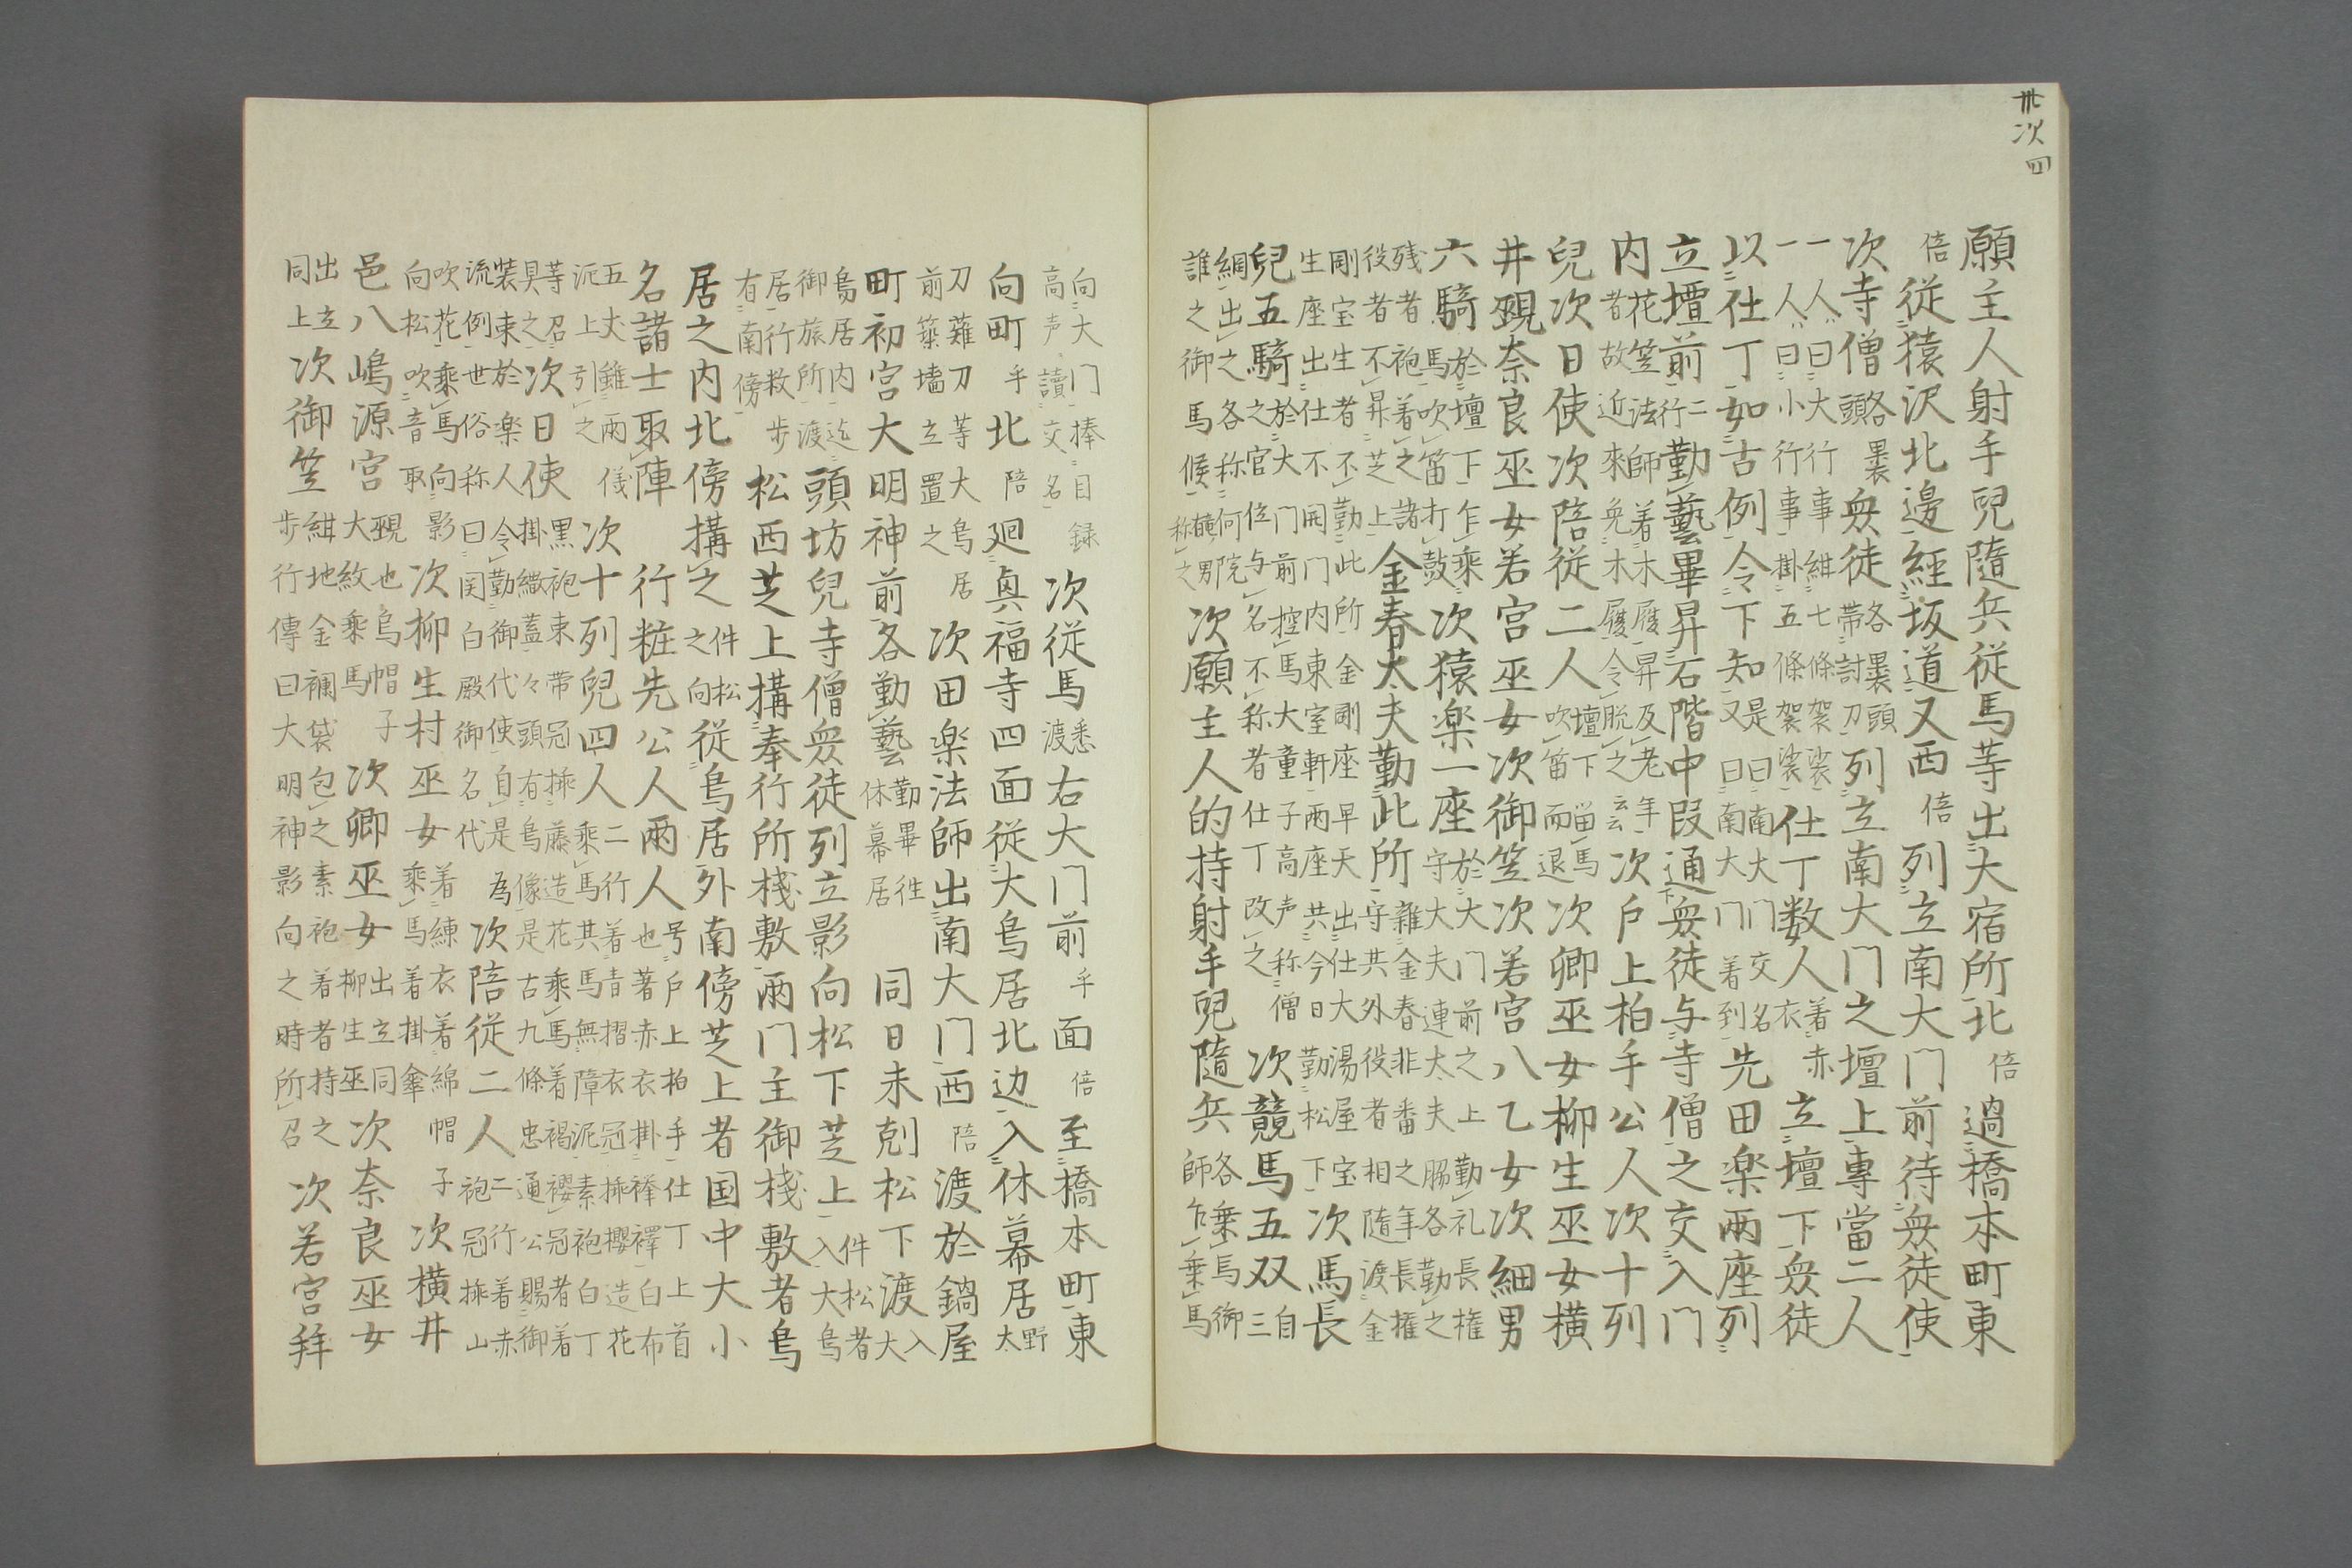 卅次四
願主人射手兒隨兵従馬等出大宿所北倍過橋本町東
倍従猿沢北邊経坂道又西倍列立南大门前待衆徒使
次寺僧各裹頭衆徒各裹頭帯討刀列立南大门之壇上専當二人
一人曰大行事紺七條袈裟一人曰小行事掛五條袈裟仕丁数人着赤衣立壇下衆徒
以仕丁如古例令下知是曰南大门交名又曰南大门着到先田楽両座列
立壇前二行勤藝畢昇石階中叚通下衆徒与寺僧之交入门
内花笠法師着木履昇及老年者故近來免木履令脱之云云次戸上柏手公人次十列
兒次日使次陪従二人壇下留馬吹笛而退次卿巫女柳生巫女横
井覡奈良巫女若宮巫女次御笠次若宮八乙女次細男
六騎於壇下乍乘馬吹笛打敲次猿楽一座於大门前之上勤礼長権守大夫連太夫脇各勤之
残者袍着之諸役者不昇芝上金春太夫勤此所雜金春非番之年長権守共外役者相隨渡金
剛宝生者不勤此所金剛座早天出仕大湯屋宝生座出仕不開门内東室軒両座共今日勤松下次馬長
兒五騎於大门前控馬大童子高声称僧之官位与名不称者仕丁改之次競馬五双自三
綱出之各称何院誰之御馬候醜男称之次願主人的持射手兒隨兵各乗馬御師乍乗馬
向大门捧目録高声讀交名次従馬悉渡右大门前手面倍至橋本町東
向町手北陪廻奥福寺四面従大鳥居北边入休幕居野太
刀薙刀等大鳥居前築墻立置之次田楽法師出南大门西陪渡於鍋屋
町初宮大明神前各勤藝勤畢徃休幕居同日未剋松下渡入大
鳥居内迄御旅所渡頭坊兒寺僧衆徒列立影向松下芝上件松者入大鳥
居行数步有南傍松西芝上搆奉行所棧敷両门主御棧敷者鳥
居之内北傍搆之件松之向従鳥居外南傍芝上者国中大小
名諸士取陣行粧先公人両人号戸上柏手仕丁上首也著赤衣掛襷襗白布
五丈雖両儀泥上引之次十列兒四人二行着青摺衣冠挿櫻造花乘馬共馬無障泥素袍白丁
等召具之次日使黒袍束帯冠挿藤造花乘馬着褐襖冠者着
裝束於楽人令掛繖蓋々頭有鳥像是古九條忠通公賜御
流例世俗称曰関白殿御名代為次陪従二人二行着赤袍冠挿山
吹花乘馬向影向松吹音取次柳生村巫女着練衣着綿帽子乘馬着掛傘次横井
邑八嶋源宮覡也烏帽子大紋乘馬次卿巫女出立同柳生巫次奈良巫女
出立同上次御笠紺地金襴袋包之素袍着者持之步行傳曰大明神影向之時所召次若宮拜